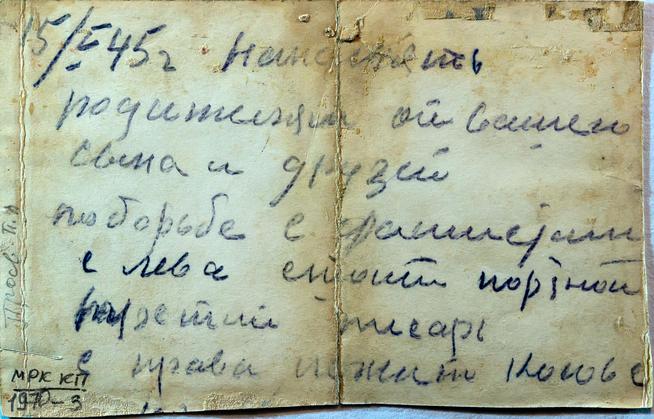 15/I 45г На память
родителям от вашего
сына и друзей
по борьбе с фашизмом
с лева стоит портной
третий писарь
с права лежит
МРК КП
1970-3